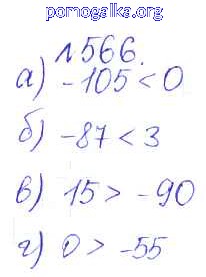 pomogalka.org
№566.
а) -105 < 0
б) -87 < 3
в) 15 > -90
г) 0 > -55